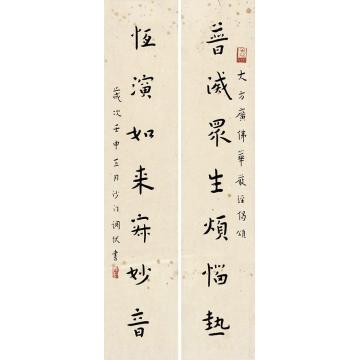 大方廣佛華嚴經偈頌
普滅眾生煩惱熱
恆演如来寂妙音
歲次壬申月沙門調伏書